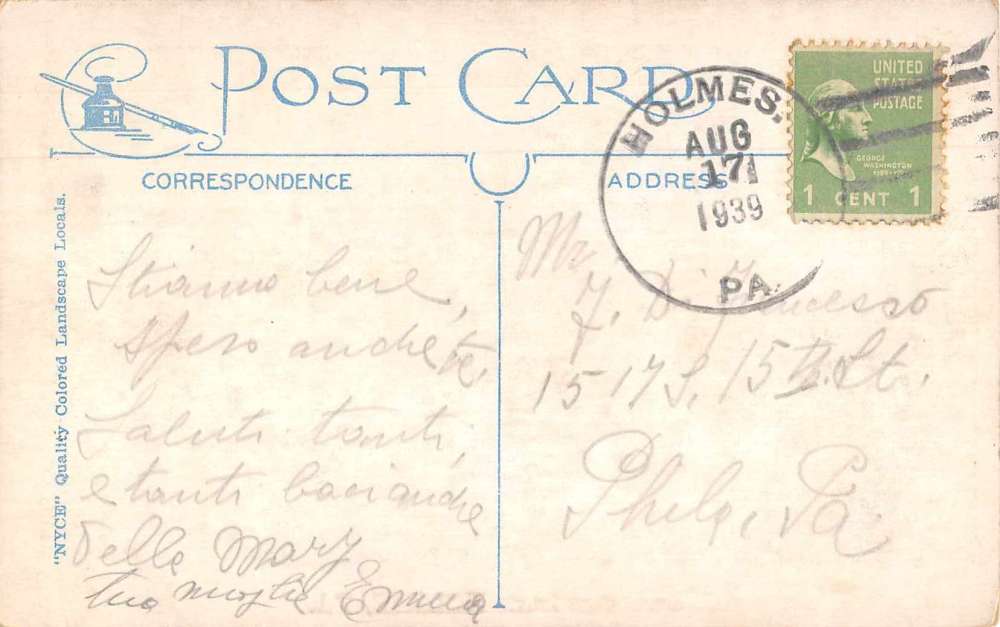 POST CARD
CORRESPONDENCE
ADDRESS
"NYCE" Quality Colored Landscape Locals.
HOLMES,
AUG
17
1939
PA.
UNITED
STATES
POSTAGE
GEORGE
WASHINGTON
1 CENT 1
Stiamo bene,
spero anche te.
Saluti tanti,
e tanti baci anche
della Mary
tua moglie Emma
Mr
F. Di Francesco
1517 S. 15th. St.
Phila, Pa.